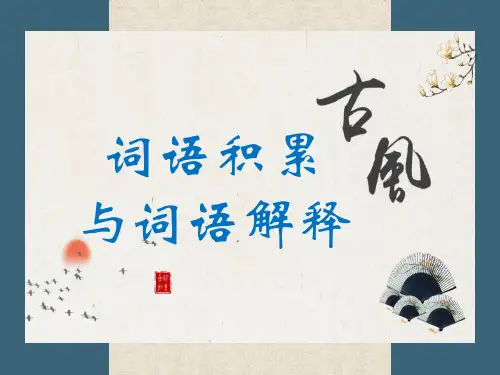 词语积累
与词语解释
古風